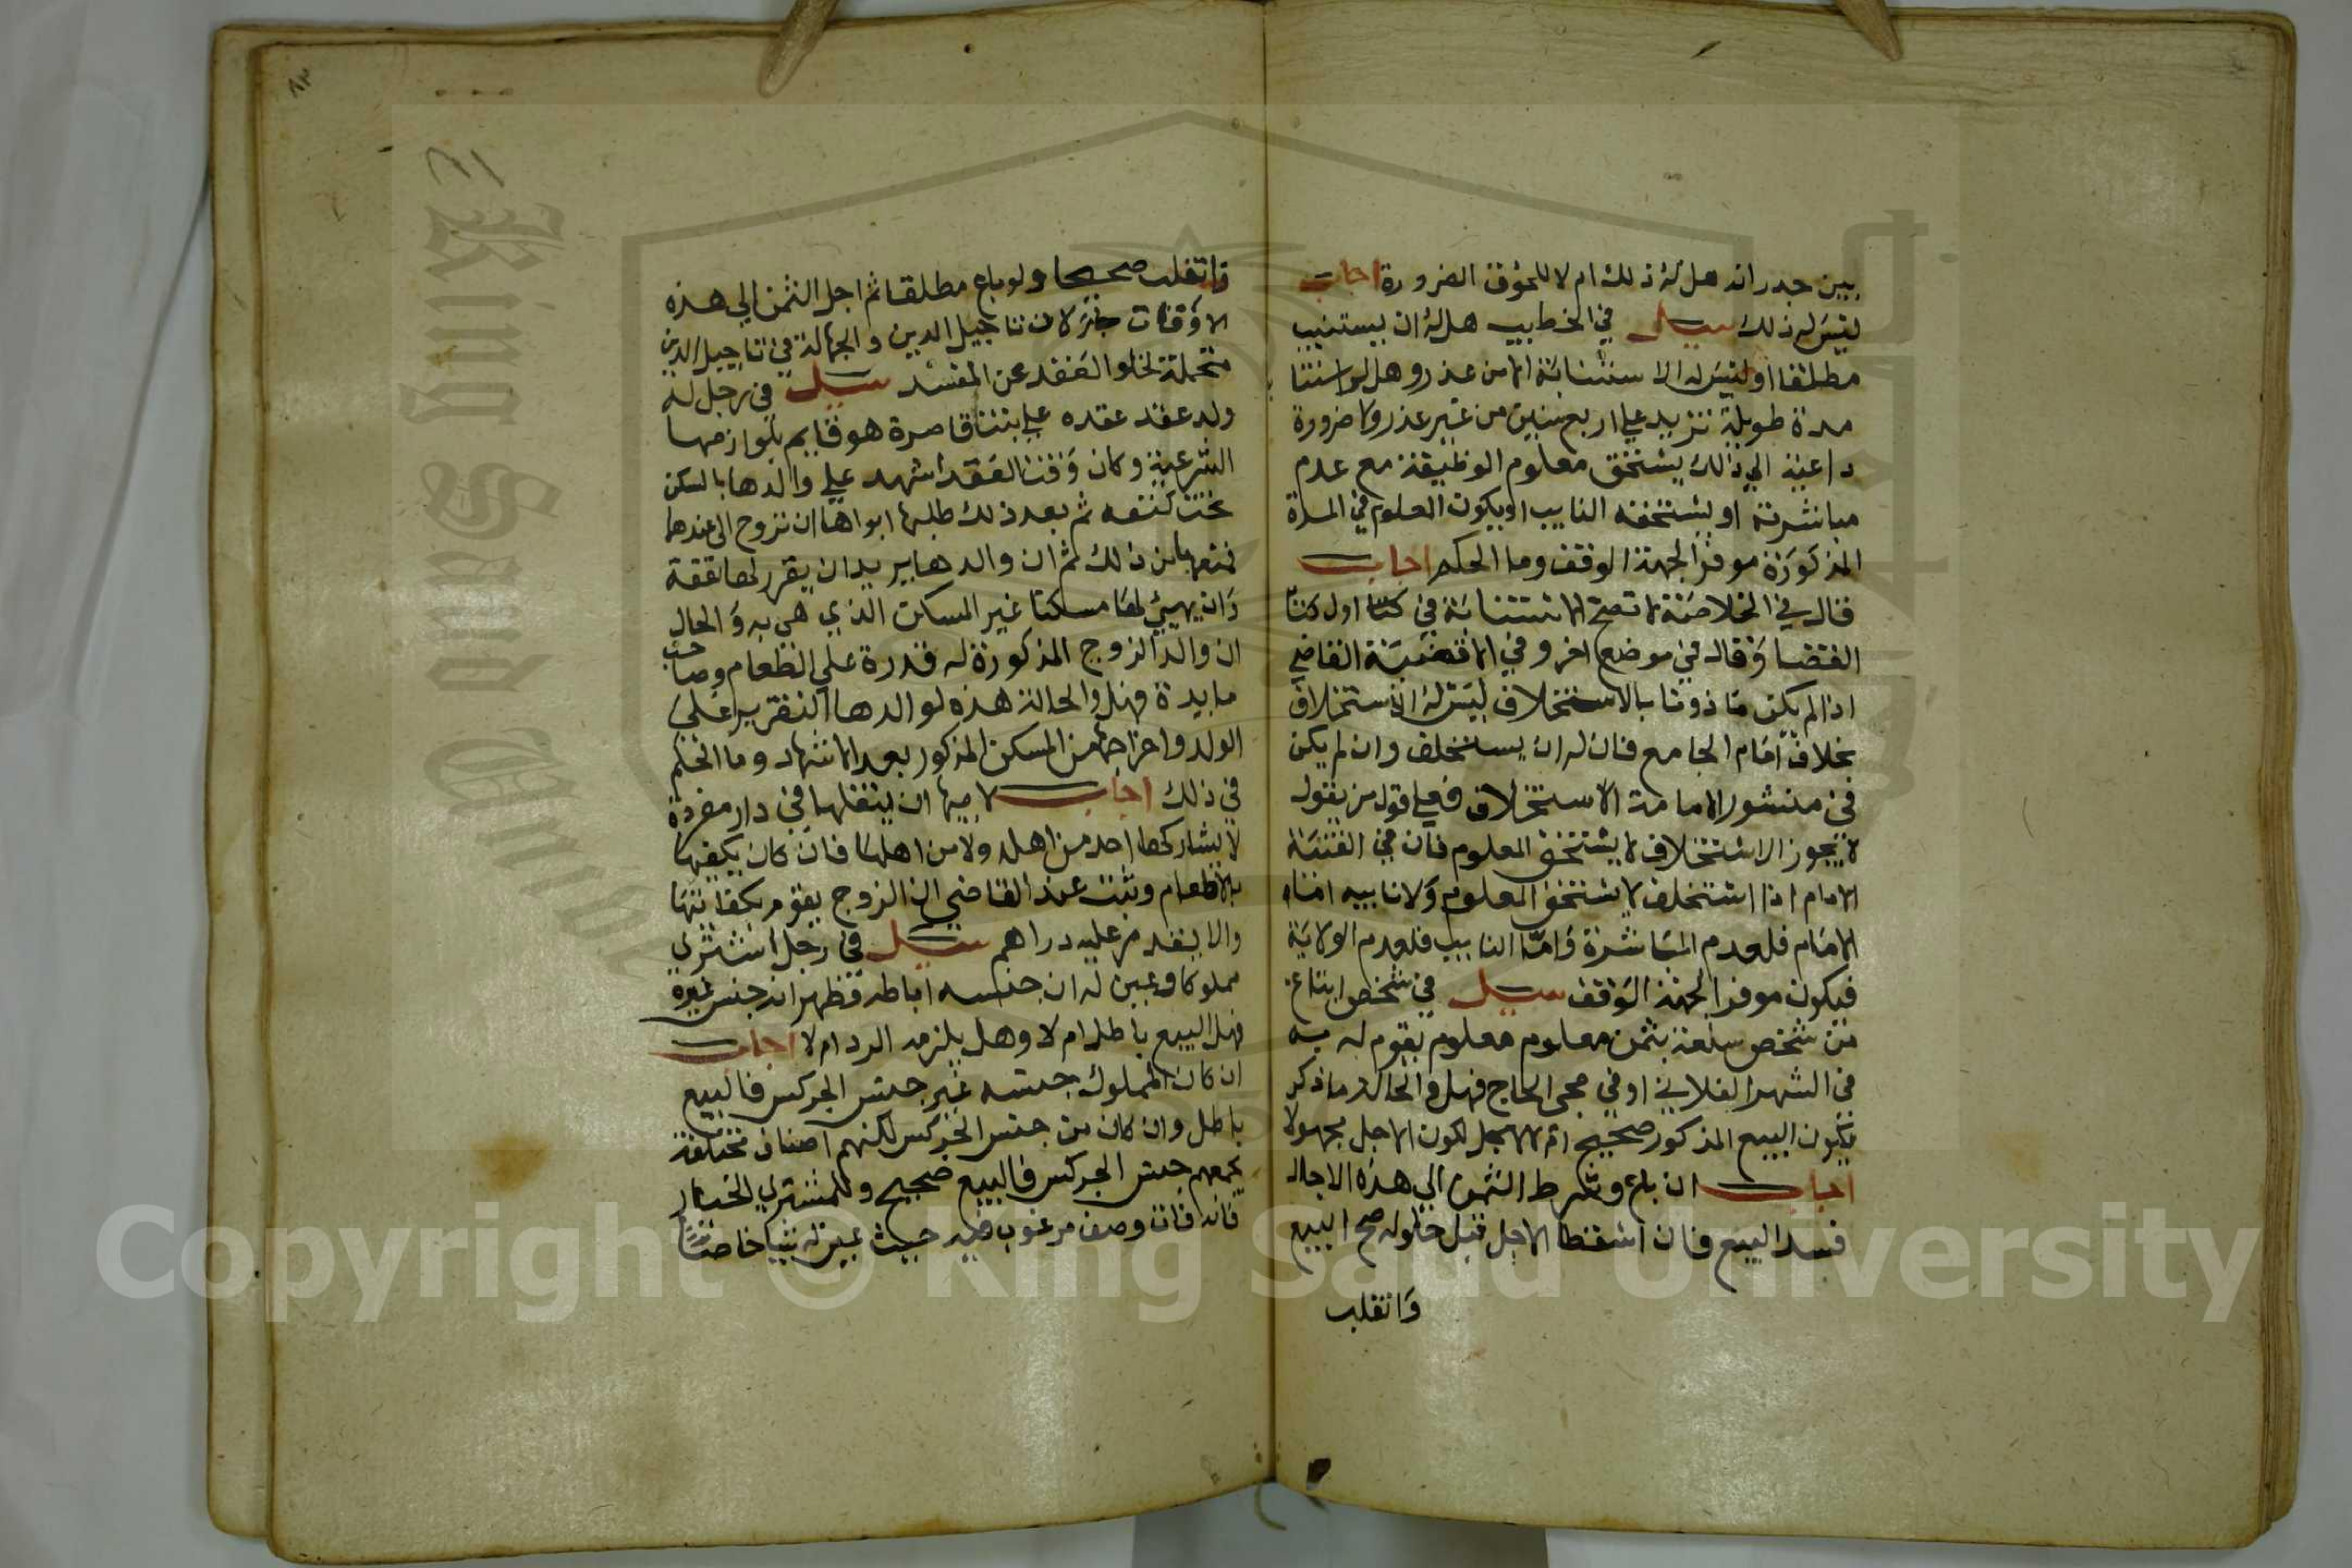 بين جدرانه هل له ذلك ام لا للخوف الضرورة اجاب
ليس له ذلك سيل في الخطيب هل له ان يستنيب
مطلقا او ليس له الاستنابة الا من عذر وهل لو استناب
مدة طويلة تزيد علي اربع سنين من غير عذر ولا ضرورة
داعية الي ذلك يستحق معلوم الوظيفة مع عدم
مباشرته او يستحقه النايب او يكون المعلوم في المدة
المذكورة موفرا لجهة الوقف وما الحكم اجاب
قال في الخلاصة لا تصح الاستنابة في اول كتاب
القضا وقال في موضع اخر وفي القاضي
اذا لم يكن ماذونا بالاستخلاف ليس له الاستخلاف
بخلاف امام الجامع فان له ان يستخلف وان لم يكن
في منشور الامامة الاستخلاف فعلي قول من يقول
لا يجوز الاستخلاف لا يستحق المعلوم فان في القنية
الامام اذا استخلف لا يستحق المعلوم ولا نايبه اما
الامام فلعدم المباشرة واما النايب فلعدم الولاية
فيكون موفرا لجهة الوقف سيل في شخص ابتاع
من شخص سلعة بثمن معلوم معلوم يقوم له به
في الشهر الفلاني او في مجي الحاج فهل والحالة ما ذكر
يكون البيع المذكور صحيح ام لا لاجل كون الاجل مجهولا
اجاب ان باع وشرط الثمن الي هذه الاجال
فسد البيع فان اسقط الاجل قبل حلوله صح البيع
وانقلب
وانقلب صحيحا ولو باع مطلقا ثم اجل الثمن الي هذه
الاوقات جاز لان تاجيل الدين والجهالة في تاجيل الدين
متحملة لخلو العقد عن المفسد سيل في رجل له
ولد عقد عقده علي بنت قاصرة هو قايم بلوازمها
الشرعية وكان وقت العقد اشهد علي والدها بالسكن
تحت كنفه ثم بعد ذلك طلبها ابواها ان تروح الي عندهما
فمنعها من ذلك ثم ان والدها يريد ان يقرر لها نفقة
وان يهيئ لها مسكنا غير المسكن الذي هي به والحال
ان والد الزوج المذكورة له قدرة علي الطعام وصاحب
مايدة فهل والحالة هذه لوالدها التقرير علي
الولد واخراجها من المسكن المذكور بعد الاشهاد وما الحكم
في ذلك اجاب لا ان ينقلها في دار مفردة
لا يشاركها احد من اهله ولا من اهلها فان كان يكفيها
بالاطعام وثبت عند القاضي ان الزوج يقوم بكفايتها
والا عليه دراهم سيل في رجل اشتري
مملوكا وعين له ان جنسه اباطه فظهر انه جنس غيره
فهل البيع باطل ام لا وهل يلزمه الرد ام لا اجاب
ان كان المملوك جنسه غير جنس الجركس فالبيع
باطل وان كان من جنس الجركس لكنهم اصناف مختلفة
يجمعهم جنس الجركس فالبيع صحيح وللمشتري الخيار
فانه فات وصف مرغوب فيه حيث عين له شيا خاصا